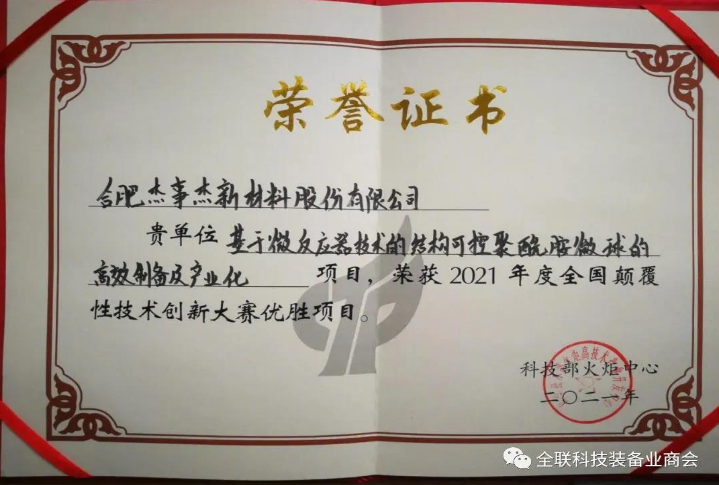 荣誉证书
合肥杰事杰新材料股份有限公司
贵单位 基于微反应器技术的结构可控聚酰胺微球的
高效制备及产业化 项目，荣获2021年度全国颠覆
性技术创新大赛优胜项目。
科技部火炬中心
二〇二一年
全联科技装备业商会